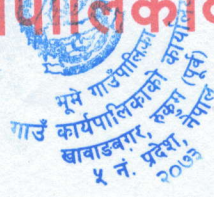 पालिकाको
भूमे गाउँपालिका
गाउँ कार्यपालिकाको कार्यालय
खावाङबगर, रुकुम (पूर्व)
५ नं. प्रदेश, नेपाल
२०७३